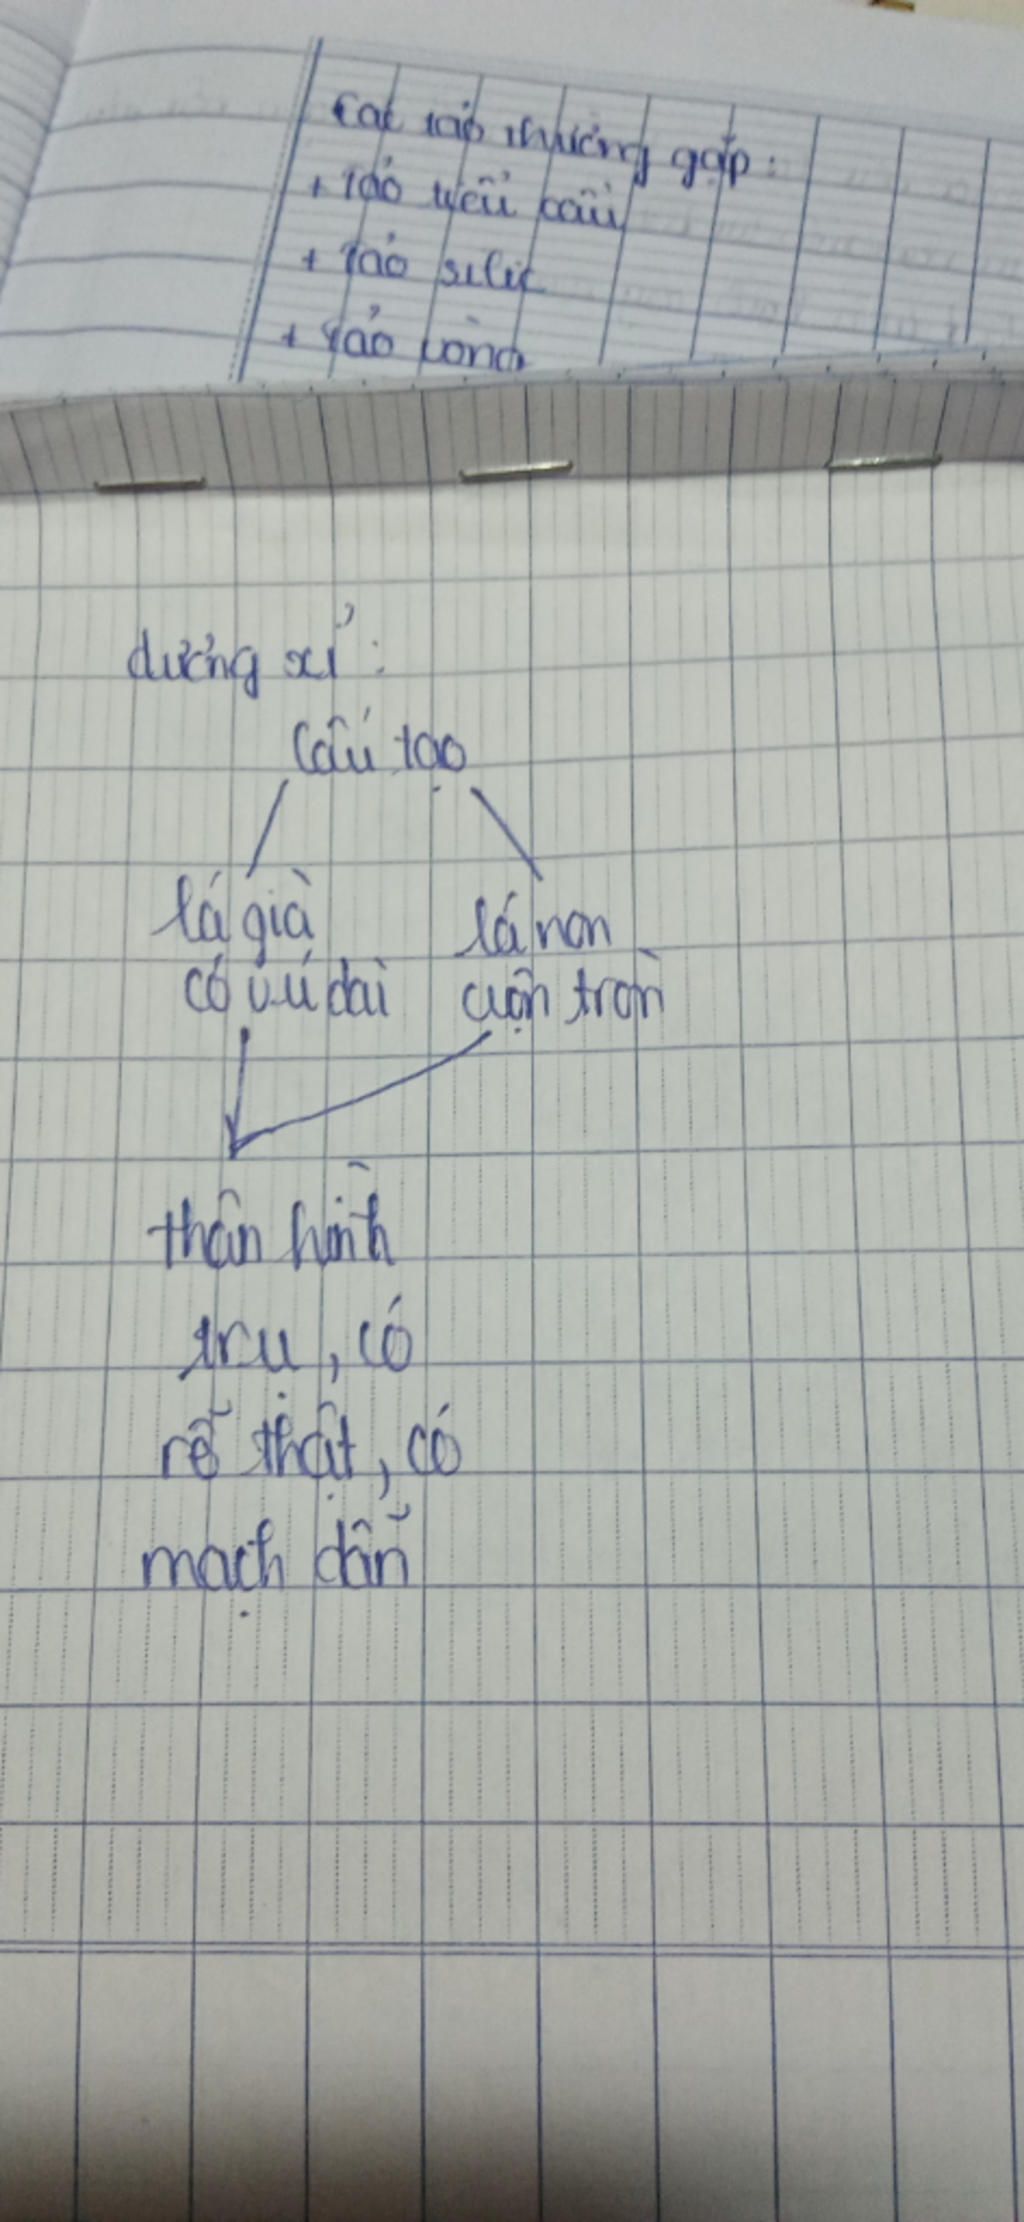 Các tảo thường gặp:
+ tảo tiểu cầu
+ tảo silic
+ tảo vòng
dương xỉ:
Cấu tạo
lá già
lá non
có cuống dài
cuộn tròn
thân hình
trụ, có
rễ thật, có
mạch dẫn